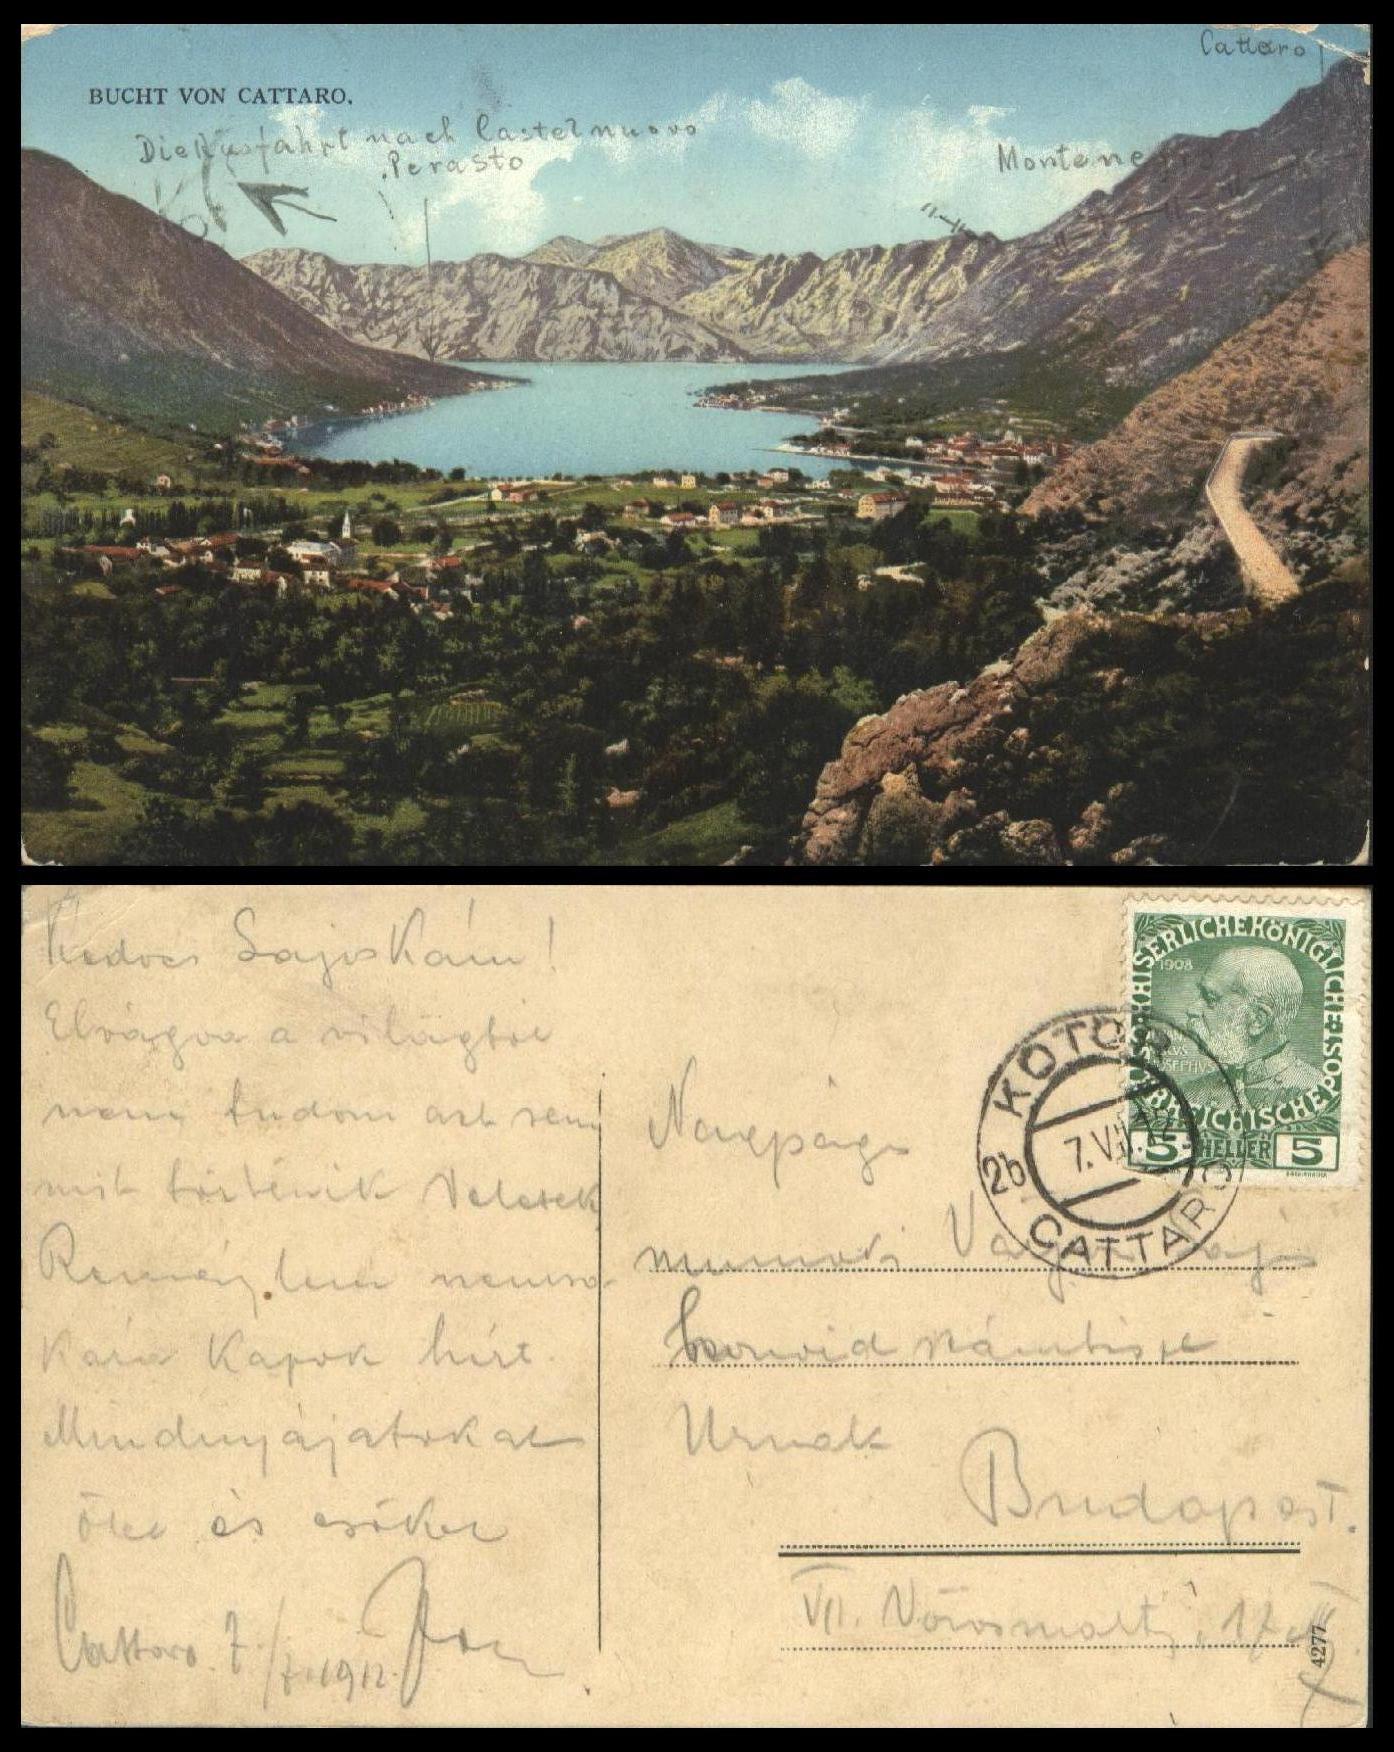 Cattaro
BUCHT VON CATTARO.
Die Ausfahrt nach Castelnuovo
Perasto
Montenegro
Kedves Lajoskám!
Elvágva a világtól
nem tudom azt sem
mi történik Veletek
Remény lem nemso-
kára kapok hírt.
Mindnyájatokat
ölel és csókol
Cattaro 7/7. 1912.
KAISERLICHE KÖNIGLICHE ÖSTERREICHISCHE POST
1908
5 HELLER 5
KOTOR
2b
7.VII.12
CATTARO
Nagyságos
Varga Lajos
Urnak
Budapest.
VII. Vörösmarty 17
4277